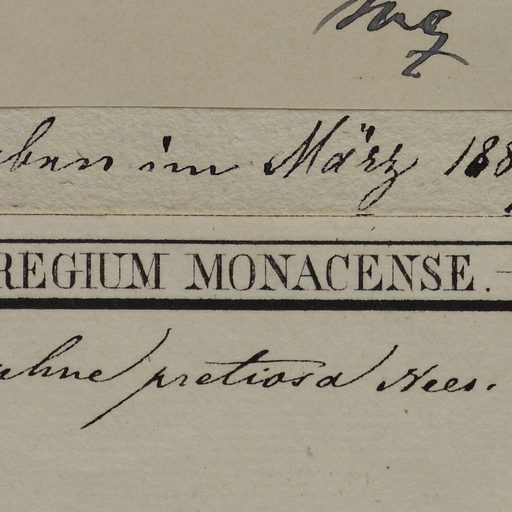 im März 188
REGIUM MONACENSE.
pretiosa Nees.